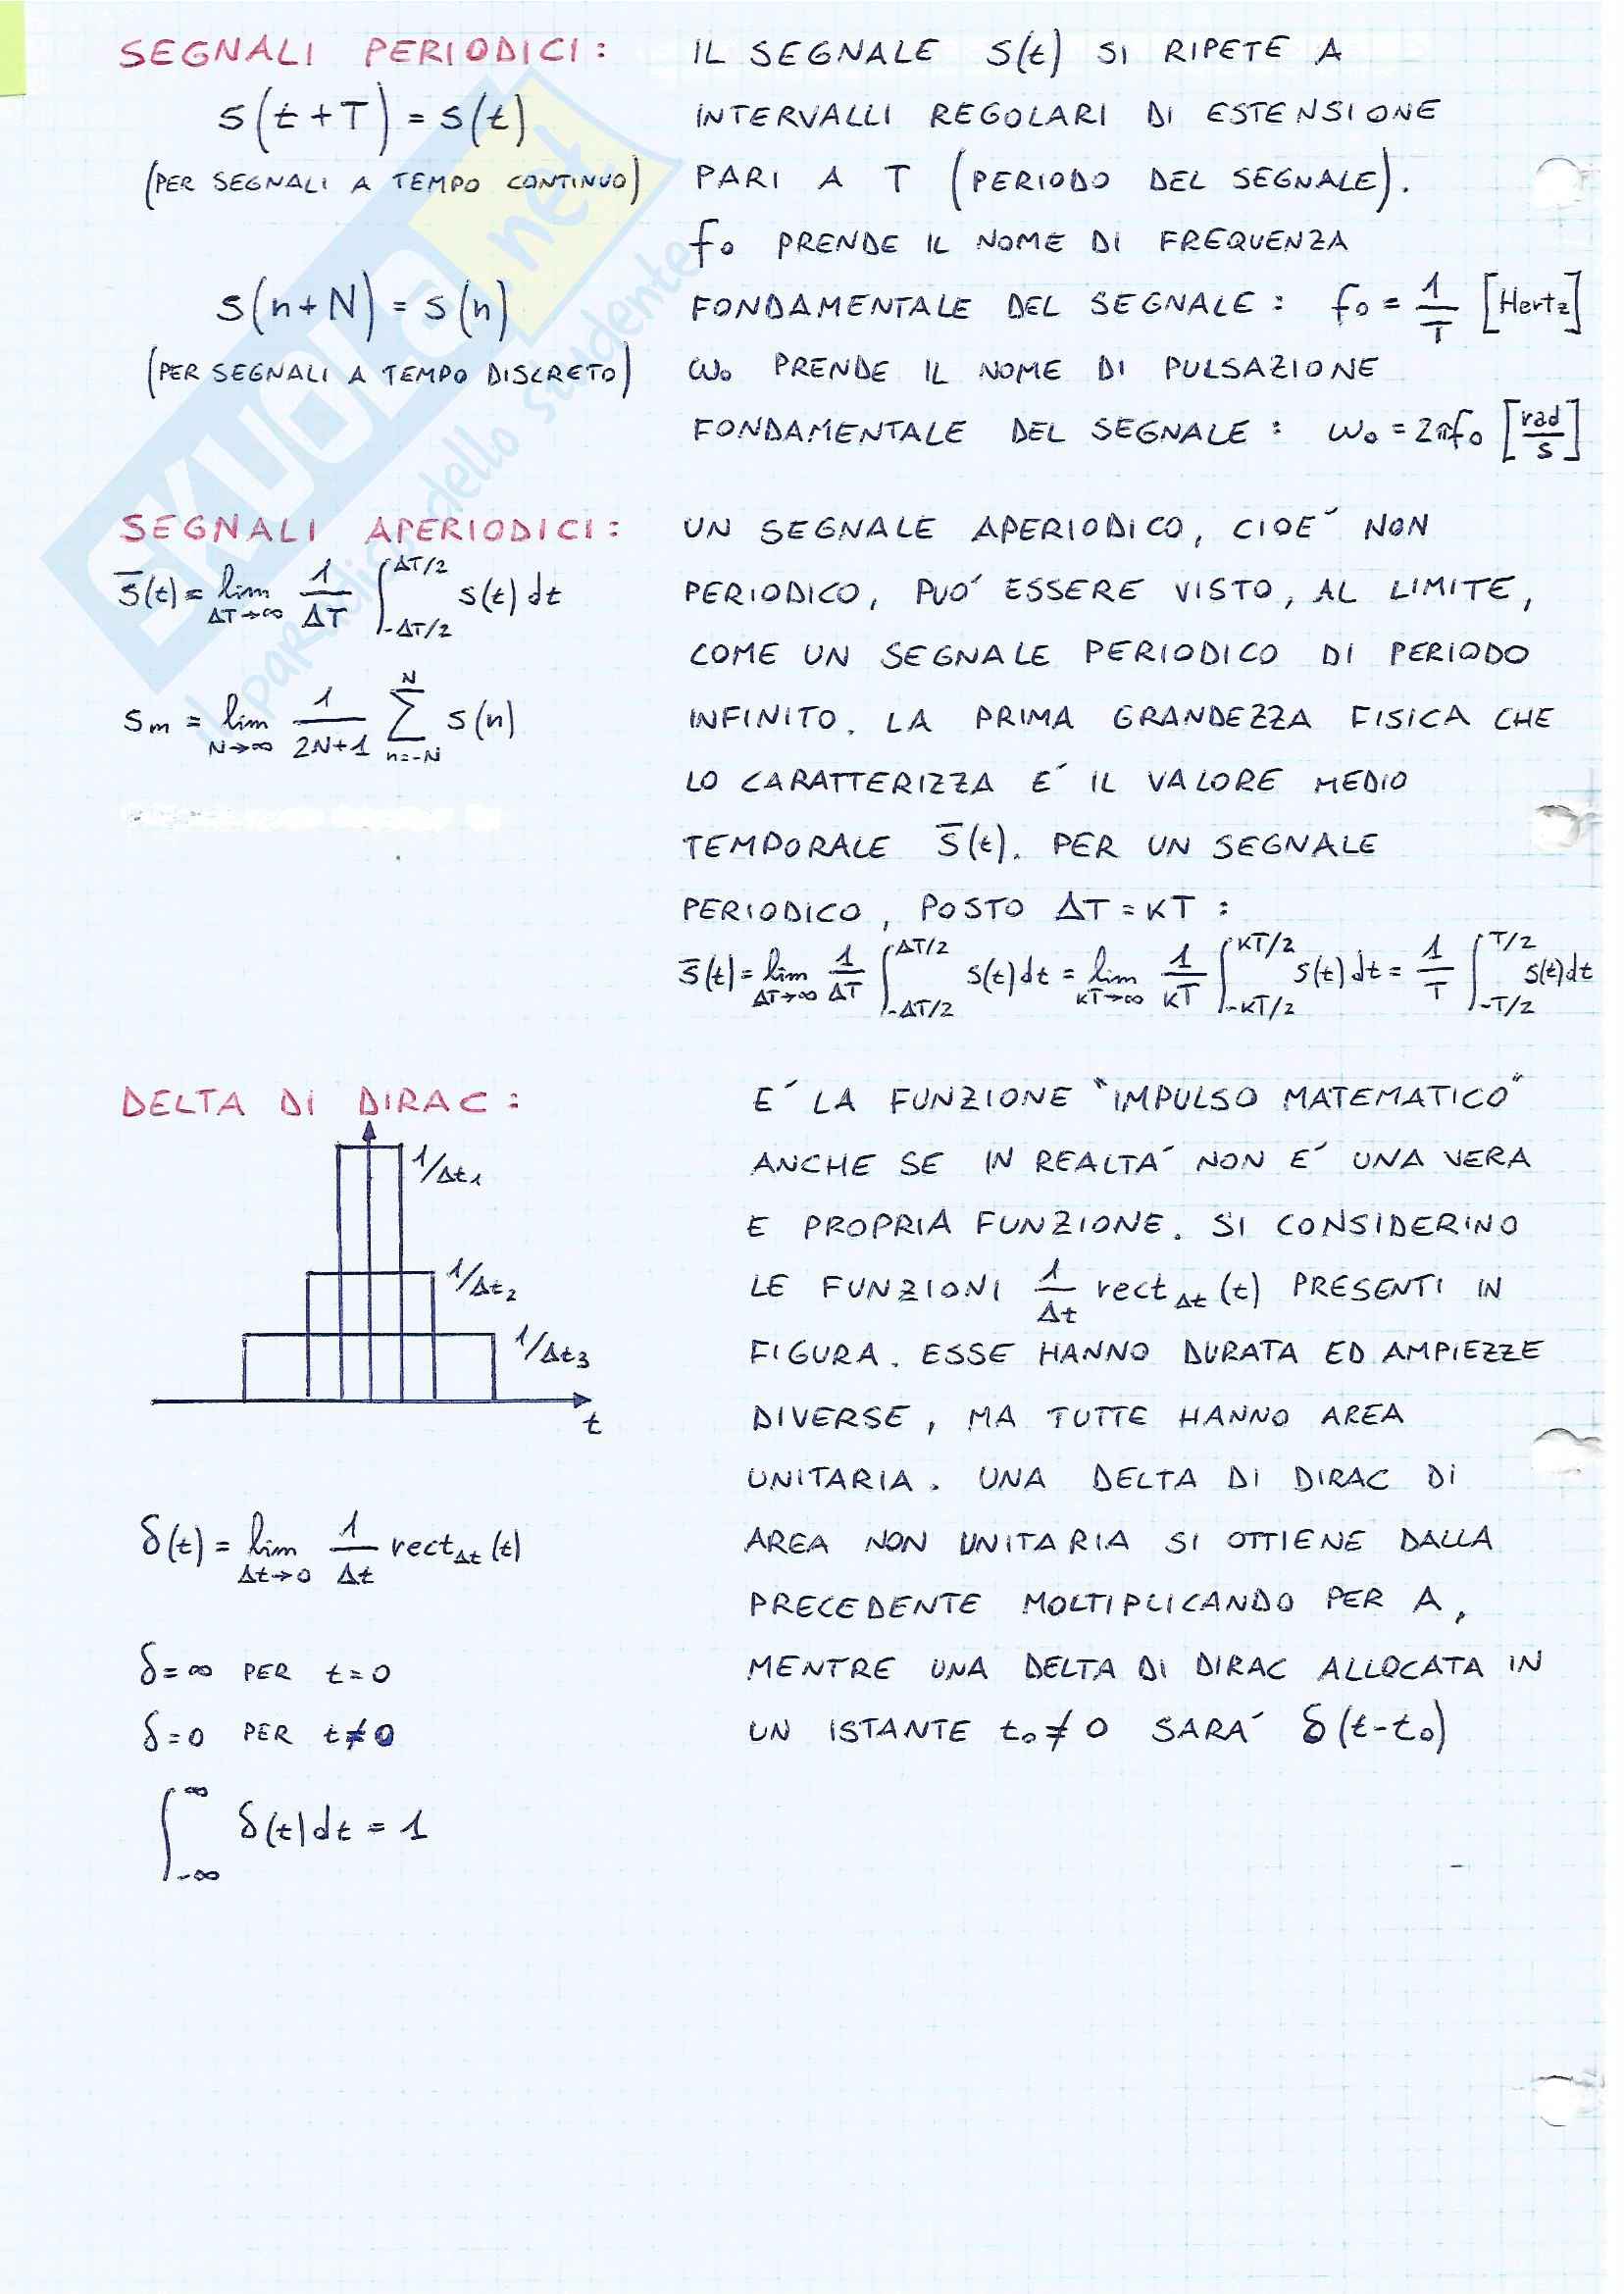 SEGNALI PERIODICI:
s(t+T) = s(t)
(PER SEGNALI A TEMPO CONTINUO)
s(n+N) = s(n)
(PER SEGNALI A TEMPO DISCRETO)
IL SEGNALE s(t) SI RIPETE A
INTERVALLI REGOLARI DI ESTENSIONE
PARI A T (PERIODO DEL SEGNALE).
f₀ PRENDE IL NOME DI FREQUENZA
FONDAMENTALE DEL SEGNALE: f₀ = 1/T [Hertz]
ω₀ PRENDE IL NOME DI PULSAZIONE
FONDAMENTALE DEL SEGNALE: ω₀ = 2πf₀ [rad/s]
SEGNALI APERIODICI:
s̅(t) = lim ΔT→∞ 1/ΔT ∫_{-ΔT/2}^{ΔT/2} s(t) dt
sₘ = lim N→∞ 1/(2N+1) Σ_{n=-N}^{N} s(n)
UN SEGNALE APERIODICO, CIOE´ NON
PERIODICO, PUO´ ESSERE VISTO, AL LIMITE,
COME UN SEGNALE PERIODICO DI PERIODO
INFINITO. LA PRIMA GRANDEZZA FISICA CHE
LO CARATTERIZZA E´ IL VALORE MEDIO
TEMPORALE s̅(t). PER UN SEGNALE
PERIODICO, POSTO ΔT = KT:
s̅(t) = lim ΔT→∞ 1/ΔT ∫_{-ΔT/2}^{ΔT/2} s(t) dt = lim KT→∞ 1/KT ∫_{-KT/2}^{KT/2} s(t) dt = 1/T ∫_{-T/2}^{T/2} s(t) dt
DELTA DI DIRAC:
1/Δt₁
1/Δt₂
1/Δt₃
t
δ(t) = lim Δt→0 1/Δt rect_Δt (t)
δ = ∞ PER t = 0
δ = 0 PER t ≠ 0
∫_{-∞}^{∞} δ(t) dt = 1
E´ LA FUNZIONE "IMPULSO MATEMATICO"
ANCHE SE IN REALTA´ NON E´ UNA VERA
E PROPRIA FUNZIONE. SI CONSIDERINO
LE FUNZIONI 1/Δt rect_Δt (t) PRESENTI IN
FIGURA. ESSE HANNO DURATA ED AMPIEZZE
DIVERSE, MA TUTTE HANNO AREA
UNITARIA. UNA DELTA DI DIRAC DI
AREA NON UNITARIA SI OTTIENE DALLA
PRECEDENTE MOLTIPLICANDO PER A,
MENTRE UNA DELTA DI DIRAC ALLOCATA IN
UN ISTANTE t₀ ≠ 0 SARA´ δ(t-t₀)
SKUOLA.net
il paradiso dello studente